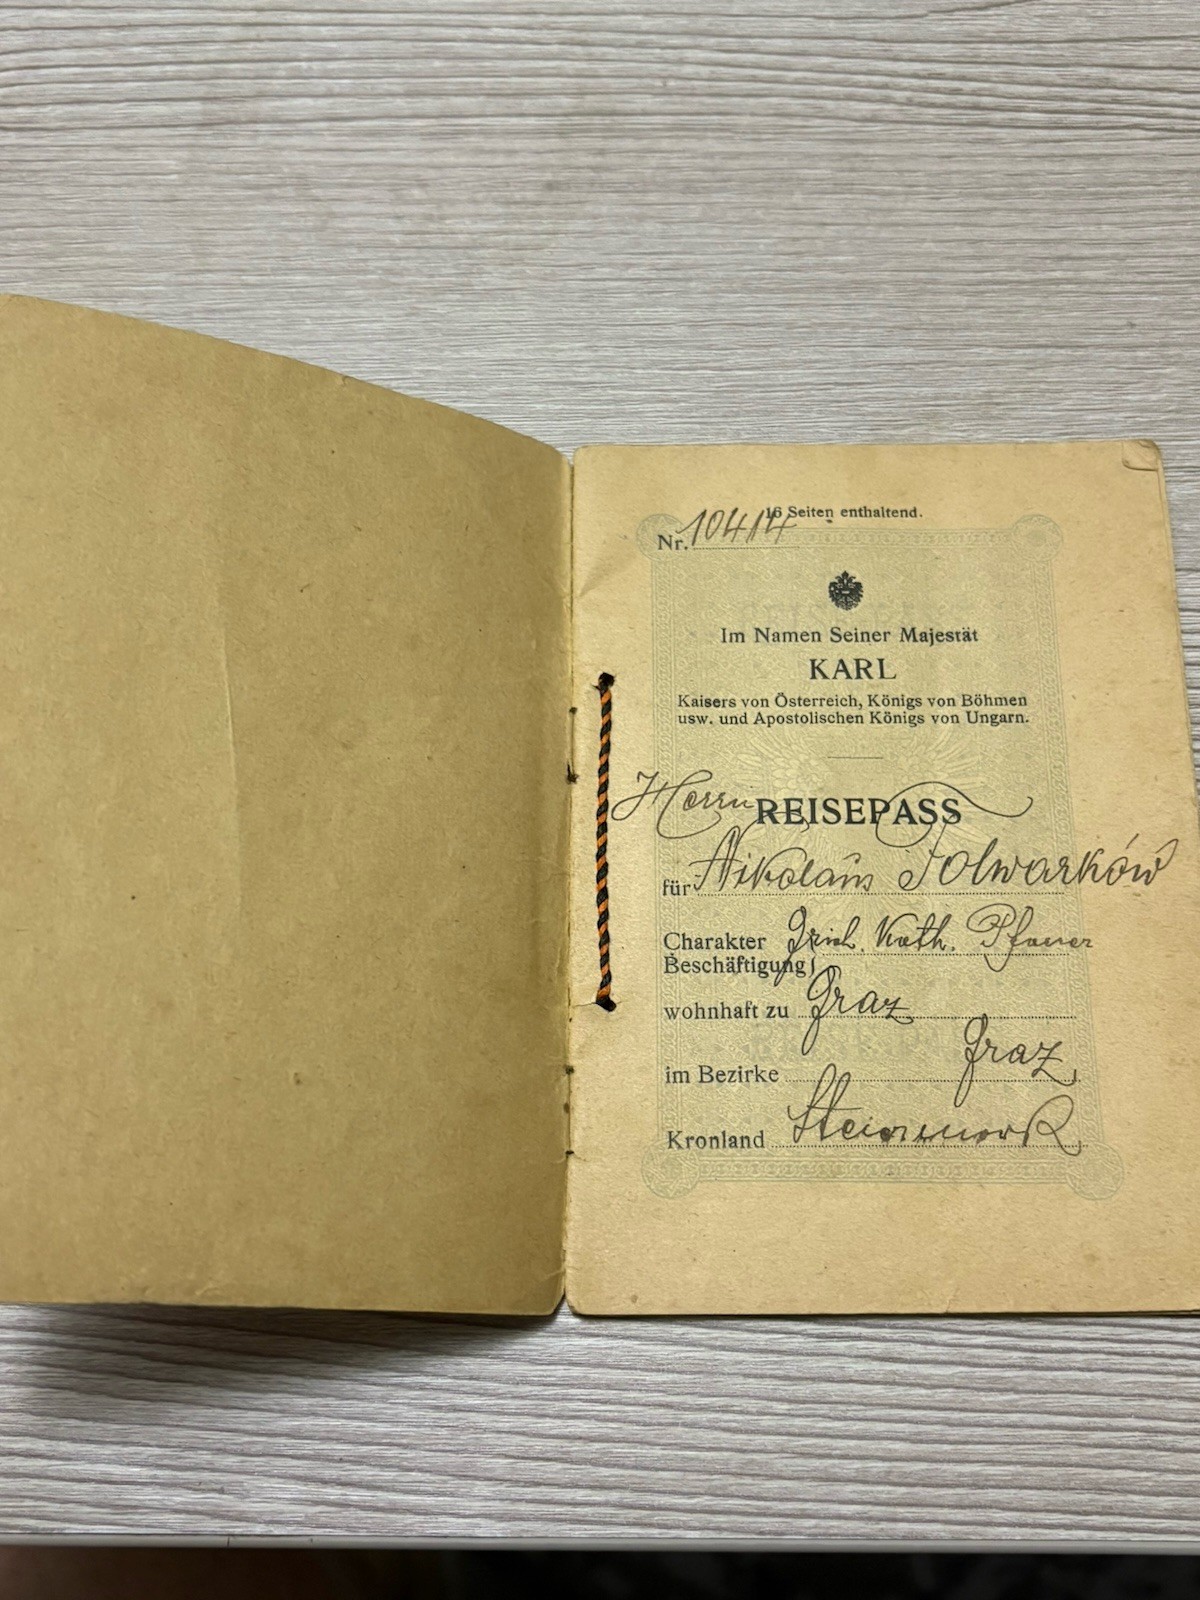 16 Seiten enthaltend.
Nr. 10414
Im Namen Seiner Majestät
KARL
Kaisers von Österreich, Königs von Böhmen
usw. und Apostolischen Königs von Ungarn.
Herrn REISEPASS
für Nikolaus Folwarków
Charakter Griech. Kath. Pfarrer
Beschäftigung
wohnhaft zu Graz
im Bezirke Graz
Kronland Steiermark